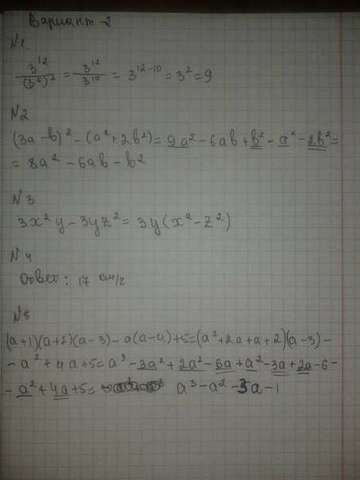 Вариант-2
№1
3^12/(3^5)^2 = 3^12/3^10 = 3^12-10 = 3^2 = 9
№2
(3a-b)^2 - (a^2+2b^2) = 9a^2 - 6ab + b^2 - a^2 - 2b^2 =
= 8a^2 - 6ab - b^2
№3
3x^2y - 3yz^2 = 3y(x^2 - z^2)
№4
Ответ: 17 км/ч
№5
(a+1)(a+2)(a-3) - a(a-4)+5 = (a^2+2a+a+2)(a-3) -
- a^2 + 4a + 5 = a^3 - 3a^2 + 2a^2 - 6a + a^2 - 3a + 2a - 6 -
- a^2 + 4a + 5 = a^3 - a^2 - 3a - 1